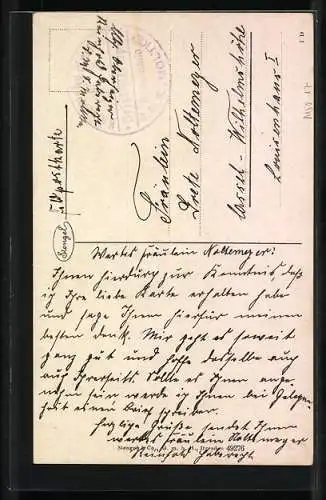 Feldpostkarte
Fräulein
Nottemeyer
Cassel - Wilhelmshöhe
Louisenhaus I
Stengel
Wertes Fräulein Nottemeyer!
Ihnen hierdurch zur Kenntnis, daß
ich Ihre liebe Karte erhalten habe
und sage Ihnen hierfür meinen
besten Dank. Mir geht es soweit
ganz gut und hoffe dasselbe auch
auch Ihrerseits. Sollte es Ihnen ange-
nehm sein werde ich Ihnen bei Gelegen-
heit einen Brief schreiben.
Herzliche Grüße sendet Ihnen
wertes Fräulein Nottemeyer
Reinhold
Stengel & Co., G. m. b. H., Dresden 49276